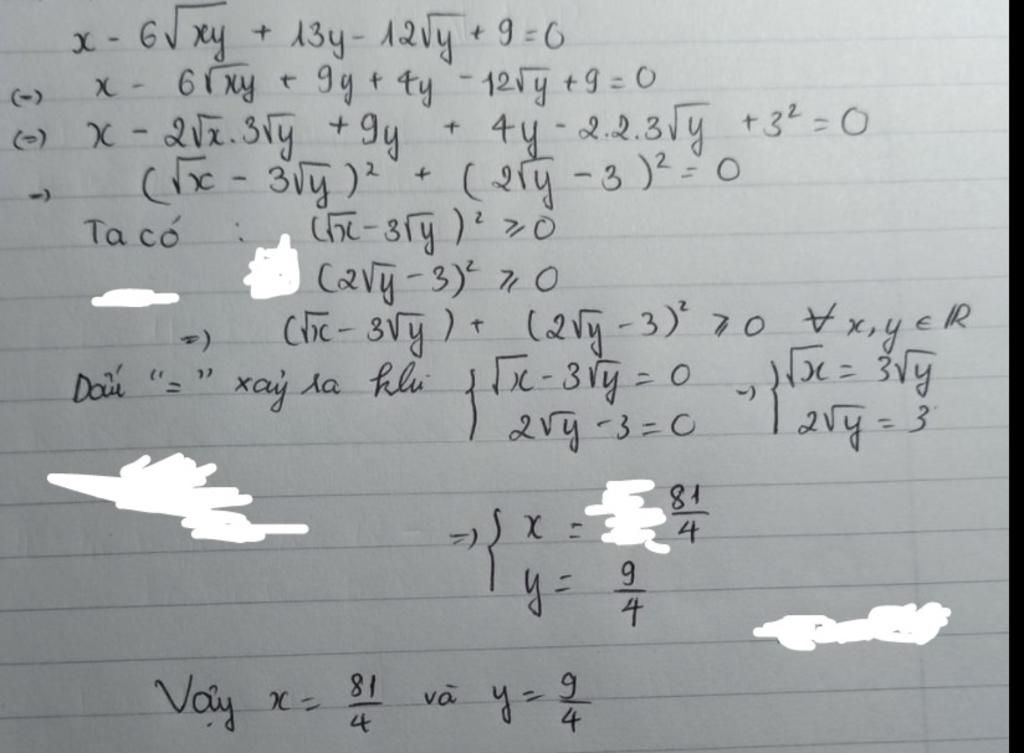 x - 6√xy + 13y - 12√y + 9 = 0
(=) x - 6√xy + 9y + 4y - 12√y + 9 = 0
(=) x - 2√x.3√y + 9y + 4y - 2.2.3√y + 3² = 0
=) (√x - 3√y)² + (2√y - 3)² = 0
Ta có : (√x - 3√y)² ≥ 0
(2√y - 3)² ≥ 0
=) (√x - 3√y) + (2√y - 3)² ≥ 0 ∀ x, y ∈ R
Dấu "=" xảy ra khi { √x - 3√y = 0 =) { √x = 3√y
2√y - 3 = 0 2√y = 3
=) { x = 81/4
y = 9/4
Vậy x = 81/4 và y = 9/4